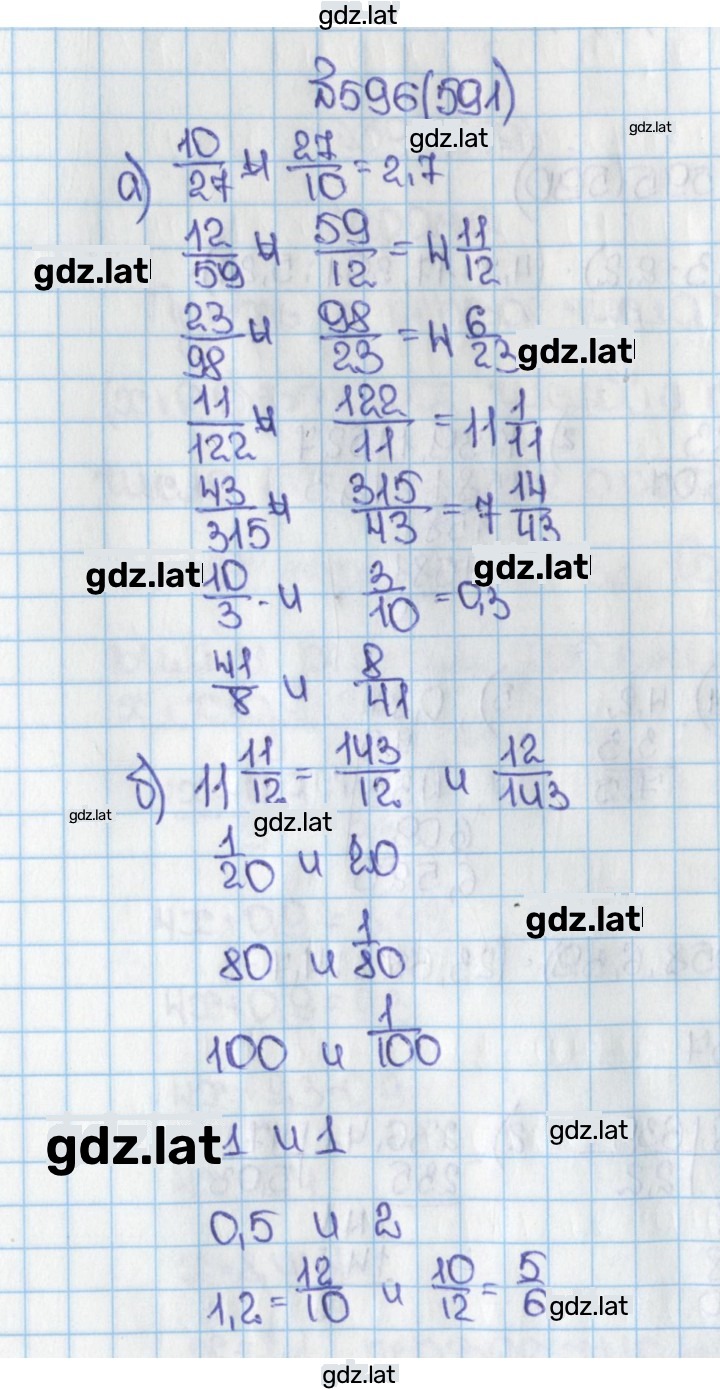 gdz.lat
№596(591)
gdz.lat gdz.lat
а) 10/27 и 27/10 = 2,7
12/59 и 59/12 = 4 11/12
gdz.lat
23/98 и 98/23 = 4 6/23
gdz.lat
11/122 и 122/11 = 11 1/11
43/315 и 315/43 = 7 14/43
gdz.lat gdz.lat
10/3 и 3/10 = 0,3
41/8 и 8/41
б) 11 11/12 = 143/12 и 12/143
gdz.lat gdz.lat
1/20 и 20
gdz.lat
80 и 1/80
100 и 1/100
gdz.lat 1 и 1 gdz.lat
0,5 и 2
1,2 = 12/10 и 10/12 = 5/6 gdz.lat
gdz.lat